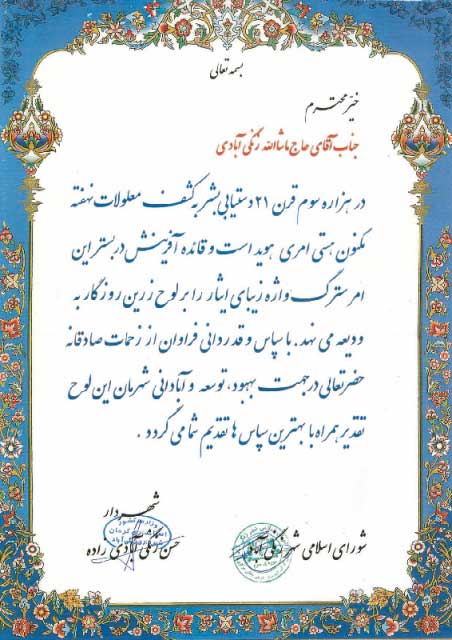 بسمه تعالی
خیّر محترم
جناب آقای حاج ماشاالله زنگی آبادی
در هزاره سوم قرن ۲۱ دستیابی بشر به کشف معلولات نهفته
مکنون هستی امری هوید است و قائده آفرینش در بستر این
امر سترگ واژه زیبای ایثار را بر لوح زرین روزگار به
ودیعه می نهد. با سپاس و قدردانی فراوان از زحمات صادقانه
حضرتعالی در جهت بهبود، توسعه و آبادانی شهرمان این لوح
تقدیر همراه با بهترین سپاس ها تقدیم شما می گردد.
شهردار
شورای اسلامی شهر زنگی آباد
حسن زنگی آبادی زاده
وزارت کشور